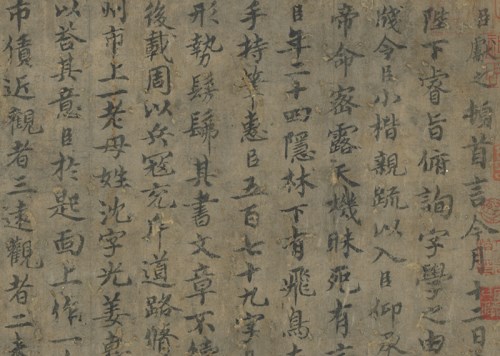 臣獻之頓首言今月十二日
陛下睿旨俯詢字學之由
牋令臣小楷親疏以入臣仰承
帝命密露天機昧死有
臣年二十四隱林下有飛鳥
手持筆惠臣五百七十九字
形勢髣髴其書文章不
後載周以兵寇充斥道路脩
州市上一老母姓沈字光姜
以荅其意臣於起面上作一
市債近觀者三遠觀者二